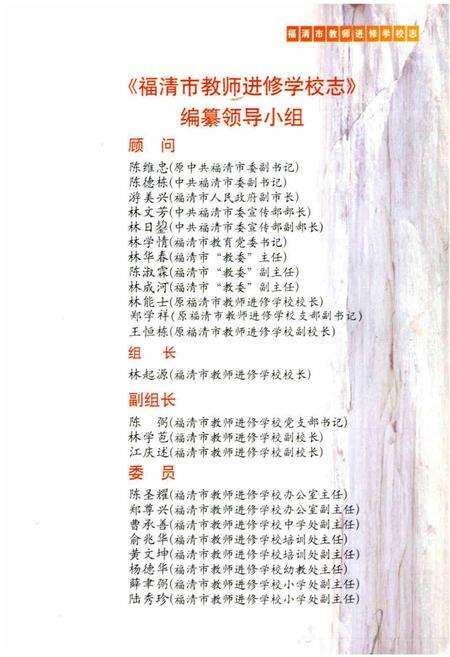 福清市教师进修学校志
《福清市教师进修学校志》
编纂领导小组
顾 问
陈维忠(原中共福清市委副书记)
陈德栋(中共福清市委副书记)
游美兴(福清市人民政府副市长)
林文芳(中共福清市委宣传部部长)
林日鋆(中共福清市委宣传部副部长)
林学情(福清市教育党委书记)
林华春(福清市“教委”主任)
陈淑霖(福清市“教委”副主任)
林成河(福清市“教委”副主任)
林能士(原福清市教师进修学校校长)
郑学祥(原福清市教师进修学校支部副书记)
王恒栋(原福清市教师进修学校副校长)
组 长
林起源(福清市教师进修学校校长)
副组长
陈 弼(福清市教师进修学校党支部书记)
林学芭(福清市教师进修学校副校长)
江庆述(福清市教师进修学校副校长)
委 员
陈圣耀(福清市教师进修学校办公室主任)
郑尊兴(福清市教师进修学校办公室副主任)
曹承善(福清市教师进修学校中学处副主任)
俞兆华(福清市教师进修学校培训处主任)
黄文坤(福清市教师进修学校培训处副主任)
杨德华(福清市教师进修学校幼教处主任)
薛聿弼(福清市教师进修学校小学处副主任)
陆秀珍(福清市教师进修学校小学处副主任)